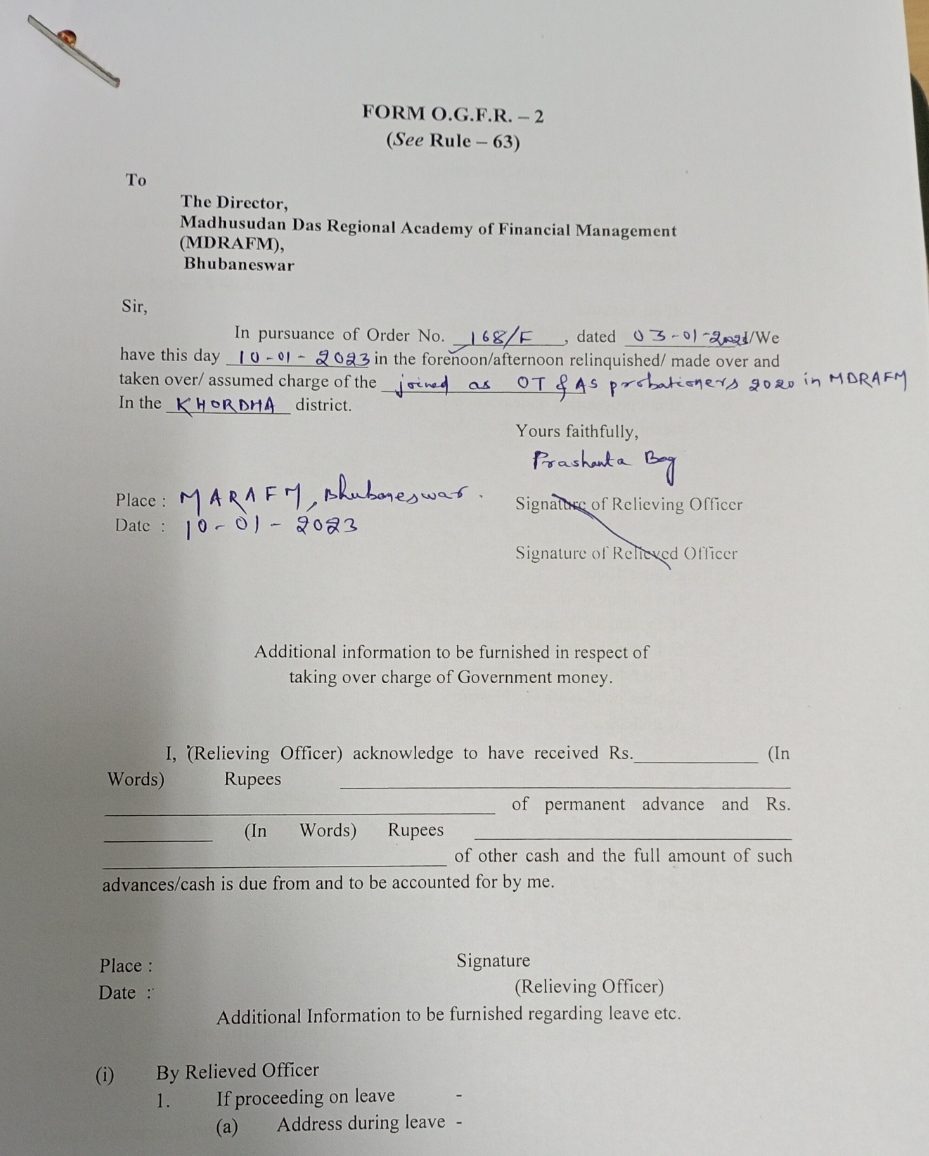 FORM O.G.F.R. – 2
(See Rule – 63)
To
The Director,
Madhusudan Das Regional Academy of Financial Management
(MDRAFM),
Bhubaneswar
Sir,
In pursuance of Order No. 168/F, dated 03-01-/We
have this day 10-01-2023 in the forenoon/afternoon relinquished/ made over and
taken over/ assumed charge of the joined as OT & AS probationers 2020 in MDRAFM
In the KHORDHA district.
Yours faithfully,
Prashanta Bag
Place : MARAFM, Bhubaneswar.
Signature of Relieving Officer
Date : 10-01-2023
Signature of Relieved Officer
Additional information to be furnished in respect of
taking over charge of Government money.
I, (Relieving Officer) acknowledge to have received Rs.____________ (In
Words) Rupees ____________
____________ of permanent advance and Rs.
____________ (In Words) Rupees ____________
____________ of other cash and the full amount of such
advances/cash is due from and to be accounted for by me.
Place : Signature
Date : (Relieving Officer)
Additional Information to be furnished regarding leave etc.
(i) By Relieved Officer
1. If proceeding on leave -
(a) Address during leave -